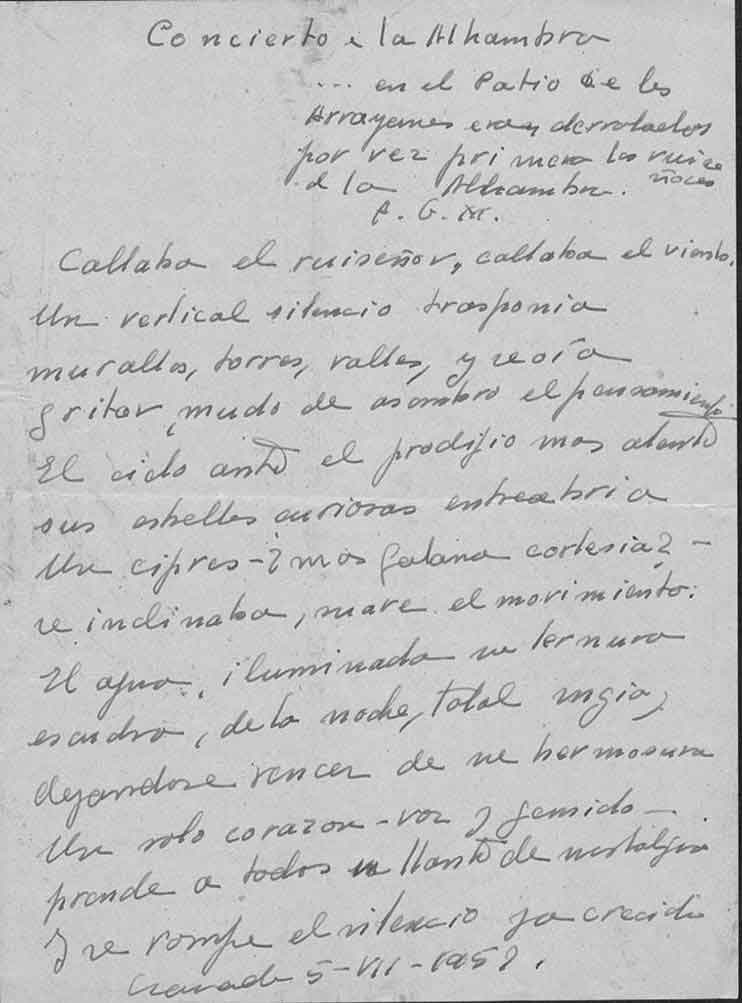 Concierto e la Alhambra
... en el Patio de los
Arrayanes eran derrotados
por vez primera los ruise
ñores
d la Alhambra.
A. G. M.
Callaba el ruiseñor, callaba el viento.
Un vertical silencio trasponia
murallas, torres, valles, y se oía
gritar, mudo de asombro el pensamiento
El cielo ante el prodigio mas atento
sus estrellas curiosas entreabria
Un cipres - ¿mas galana cortesia? -
se inclinaba, suave el movimiento.
El agua, iluminada su ternura
escudra, de la noche, total
dejandose vencer de su hermosura
Un solo corazon - voz y gemido -
prende a todos su llanto de nostalgia
y se rompe el silencio ya crecido
Granada 5-VII-195